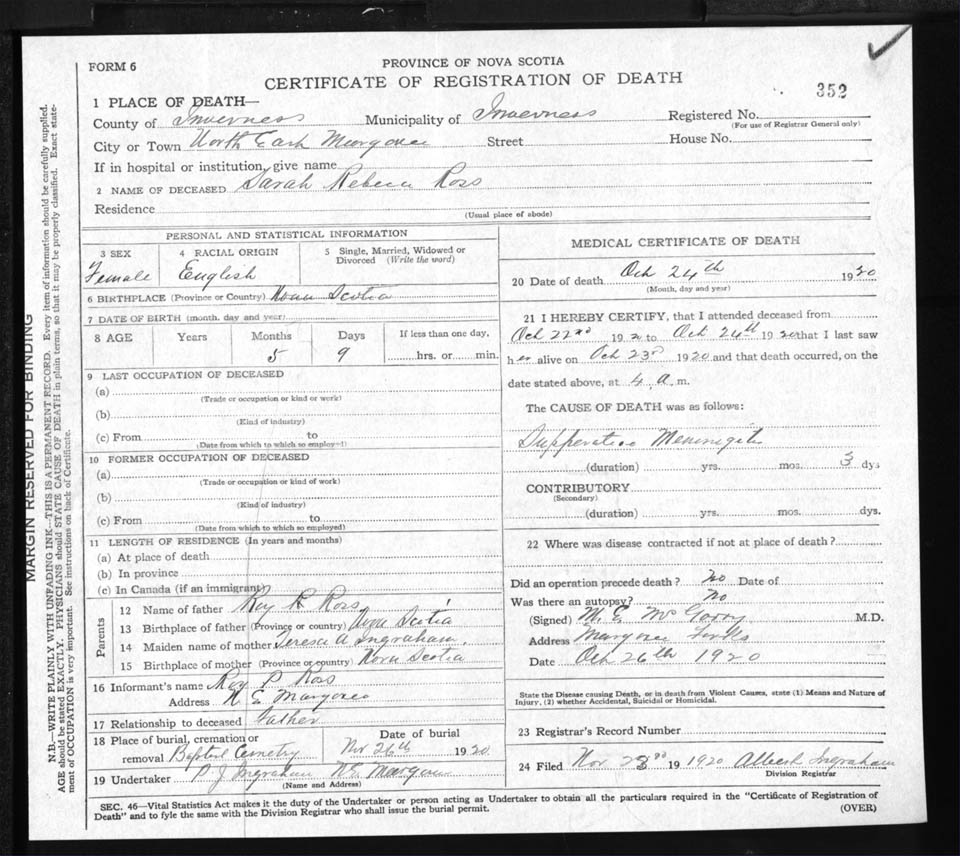 FORM 6
PROVINCE OF NOVA SCOTIA
CERTIFICATE OF REGISTRATION OF DEATH
352
1 PLACE OF DEATH—
County of Inverness Municipality of Inverness Registered No.
(For use of Registrar General only)
City or Town North East Margaree Street House No.
If in hospital or institution, give name
2 NAME OF DECEASED Sarah Rebecca Ross
Residence
(Usual place of abode)
PERSONAL AND STATISTICAL INFORMATION
3 SEX 4 RACIAL ORIGIN 5 Single, Married, Widowed or
Divorced (Write the word)
Female English
6 BIRTHPLACE (Province or Country) Nova Scotia
7 DATE OF BIRTH (month, day and year)
8 AGE Years Months Days If less than one day,
5 9 hrs. or min.
9 LAST OCCUPATION OF DECEASED
(a)
(Trade or occupation or kind or work)
(b)
(Kind of industry)
(c) From to
(Date from which to which so employed)
10 FORMER OCCUPATION OF DECEASED
(a)
(Trade or occupation or kind of work)
(b)
(Kind of industry)
(c) From to
(Date from which to which so employed)
11 LENGTH OF RESIDENCE (In years and months)
(a) At place of death
(b) In province
(c) In Canada (if an immigrant)
Parents
12 Name of father Roy P Ross
13 Birthplace of father (Province or country) Nova Scotia
14 Maiden name of mother Teresa A Ingraham
15 Birthplace of mother (Province or country) Nova Scotia
16 Informant's name Roy P Ross
Address N E Margaree
17 Relationship to deceased Father
18 Place of burial, cremation or Date of burial
removal Baptist Cemetry Nov 26th 1920
19 Undertaker P J Ingraham N E Margaree
(Name and Address)
MEDICAL CERTIFICATE OF DEATH
20 Date of death Oct 24th 1920
(Month, day and year)
21 I HEREBY CERTIFY, that I attended deceased from
Oct 22nd 1920 to Oct 24th 1920 that I last saw
her alive on Oct 23rd 1920 and that death occurred, on the
date stated above, at 4 a m.
The CAUSE OF DEATH was as follows:
Supperative Meningitis
(duration) yrs. mos. 3 dys
CONTRIBUTORY
(Secondary)
(duration) yrs. mos. dys.
22 Where was disease contracted if not at place of death?
Did an operation precede death? No Date of
Was there an autopsy? No
(Signed) M. E. M.D.
Address Margaree Forks
Date Oct 26th 1920
State the Disease causing Death, or in death from Violent Causes, state (1) Means and Nature of
Injury, (2) whether Accidental, Suicidal or Homicidal.
23 Registrar's Record Number
24 Filed Nov. 19 1920 Albert Ingraham
Division Registrar
SEC. 46—Vital Statistics Act makes it the duty of the Undertaker or person acting as Undertaker to obtain all the particulars required in the "Certificate of Registration of
Death" and to fyle the same with the Division Registrar who shall issue the burial permit. (OVER)
MARGIN RESERVED FOR BINDING
N.B.—WRITE PLAINLY WITH UNFADING INK—THIS IS A PERMANENT RECORD. Every item of information should be carefully supplied.
AGE should be stated EXACTLY. PHYSICIANS should STATE CAUSE OF DEATH in plain terms, so that it may be properly classified. Exact state-
ment of OCCUPATION is very important. See instructions on back of Certificate.